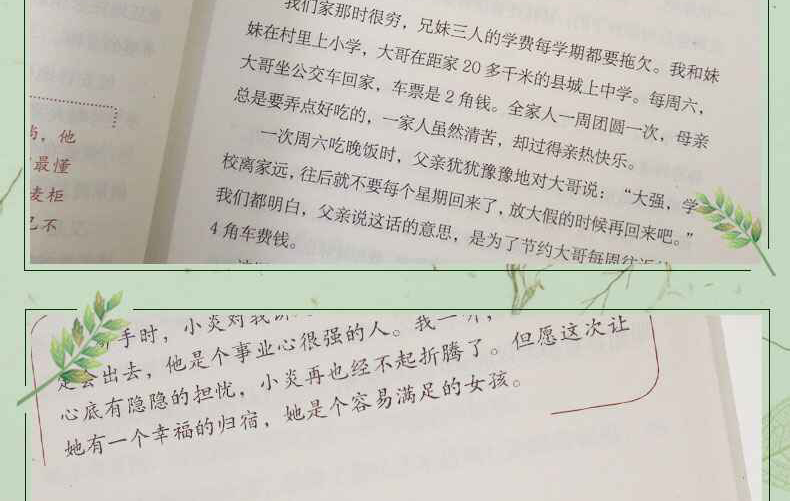 我们家那时很穷，兄妹三人的学费每学期都要拖欠。我和妹
妹在村里上小学，大哥在距家20多千米的县城上中学。每周六，
大哥坐公交车回家，车票是2角钱。全家人一周团圆一次，母亲
总是要弄点好吃的，一家人虽然清苦，却过得亲热快乐。
一次周六吃晚饭时，父亲犹犹豫豫地对大哥说：“大强，学
校离家远，往后就不要每个星期回来了，放大假的时候再回来吧。”
我们都明白，父亲说这话的意思，是为了节约大哥每周往返
4角车费钱。
，他
最懂
麦柜
己不
手时，小炎对我
定会出去，他是个事业心很强的人。我一听，
心底有隐隐的担忧，小炎再也经不起折腾了。但愿这次让
她有一个幸福的归宿，她是个容易满足的女孩。